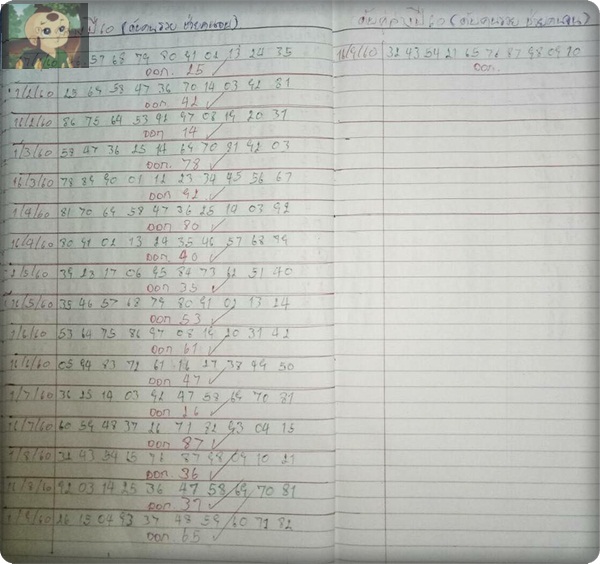 ปี 60 (
57 68 79 80 91 02 13 24 35
ออก. 25
1/2/60 25 69 58 47 36 70 14 03 92 81
ออก. 42
16/2/60 86 75 64 53 42 97 08 19 20 31
ออก 14
1/3/60 58 47 36 25 14 69 70 81 92 03
ออก. 78
16/3/60 78 89 90 01 12 23 34 45 56 67
ออก 92
1/4/60 81 70 69 58 47 36 25 14 03 92
ออก 80
16/4/60 80 91 02 13 24 35 46 57 68 79
ออก. 40
2/5/60 39 23 17 06 95 84 73 62 51 40
ออก 35
16/5/60 35 46 57 68 79 80 91 02 13 24
ออก 53
1/6/60 53 64 75 86 97 08 19 20 31 42
ออก 61
16/6/60 05 94 83 72 61 16 27 38 49 50
ออก 47
1/7/60 36 25 14 03 92 47 58 69 70 81
ออก 26
16/7/60 60 59 48 37 26 71 82 93 04 15
ออก 87
1/8/60 32 43 54 65 76 87 98 09 10 21
ออก 36
16/8/60 92 03 14 25 36 47 58 69 70 81
ออก 37
1/9/60 26 15 04 93 37 48 59 60 71 82
ออก 65
ปี 60 (
16/9/60 32 43 54 21 65 76 87 98 09 10
ออก.